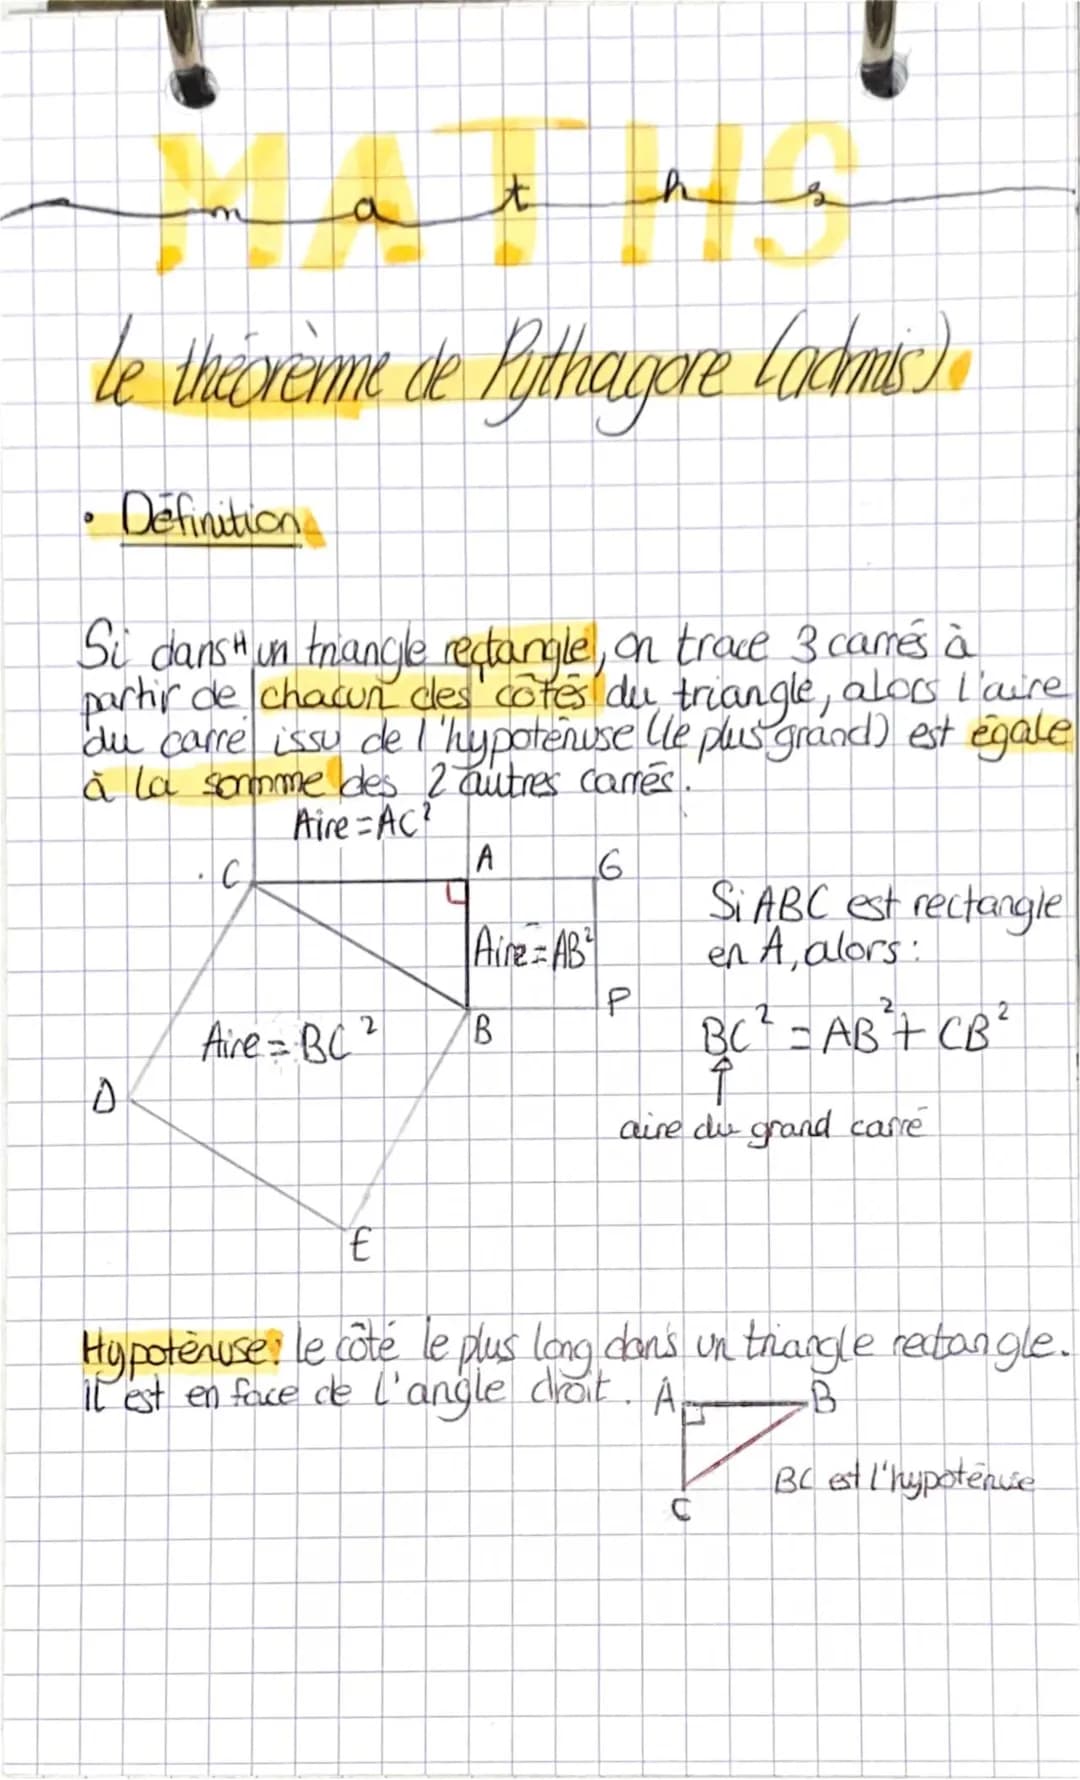 MATHS
maths
Le théorème de Pythagore (admis).
• Définition
Si dans un triangle rectangle, on trace 3 carrés à
partir de chacun des côtés du triangle, alors l'aire
du carré issu de l'hypoténuse (le plus grand) est égale
à la somme des 2 autres carrés.
Aire = AC²
C
A
G
Si ABC est rectangle
en A, alors :
Aire = AB²
P
B
BC² = AB² + CB²
Aire = BC²
D
aire du grand carré
E
Hypoténuse : le côté le plus long dans un triangle rectangle.
il est en face de l'angle droit.
A
B
BC est l'hypoténuse
C